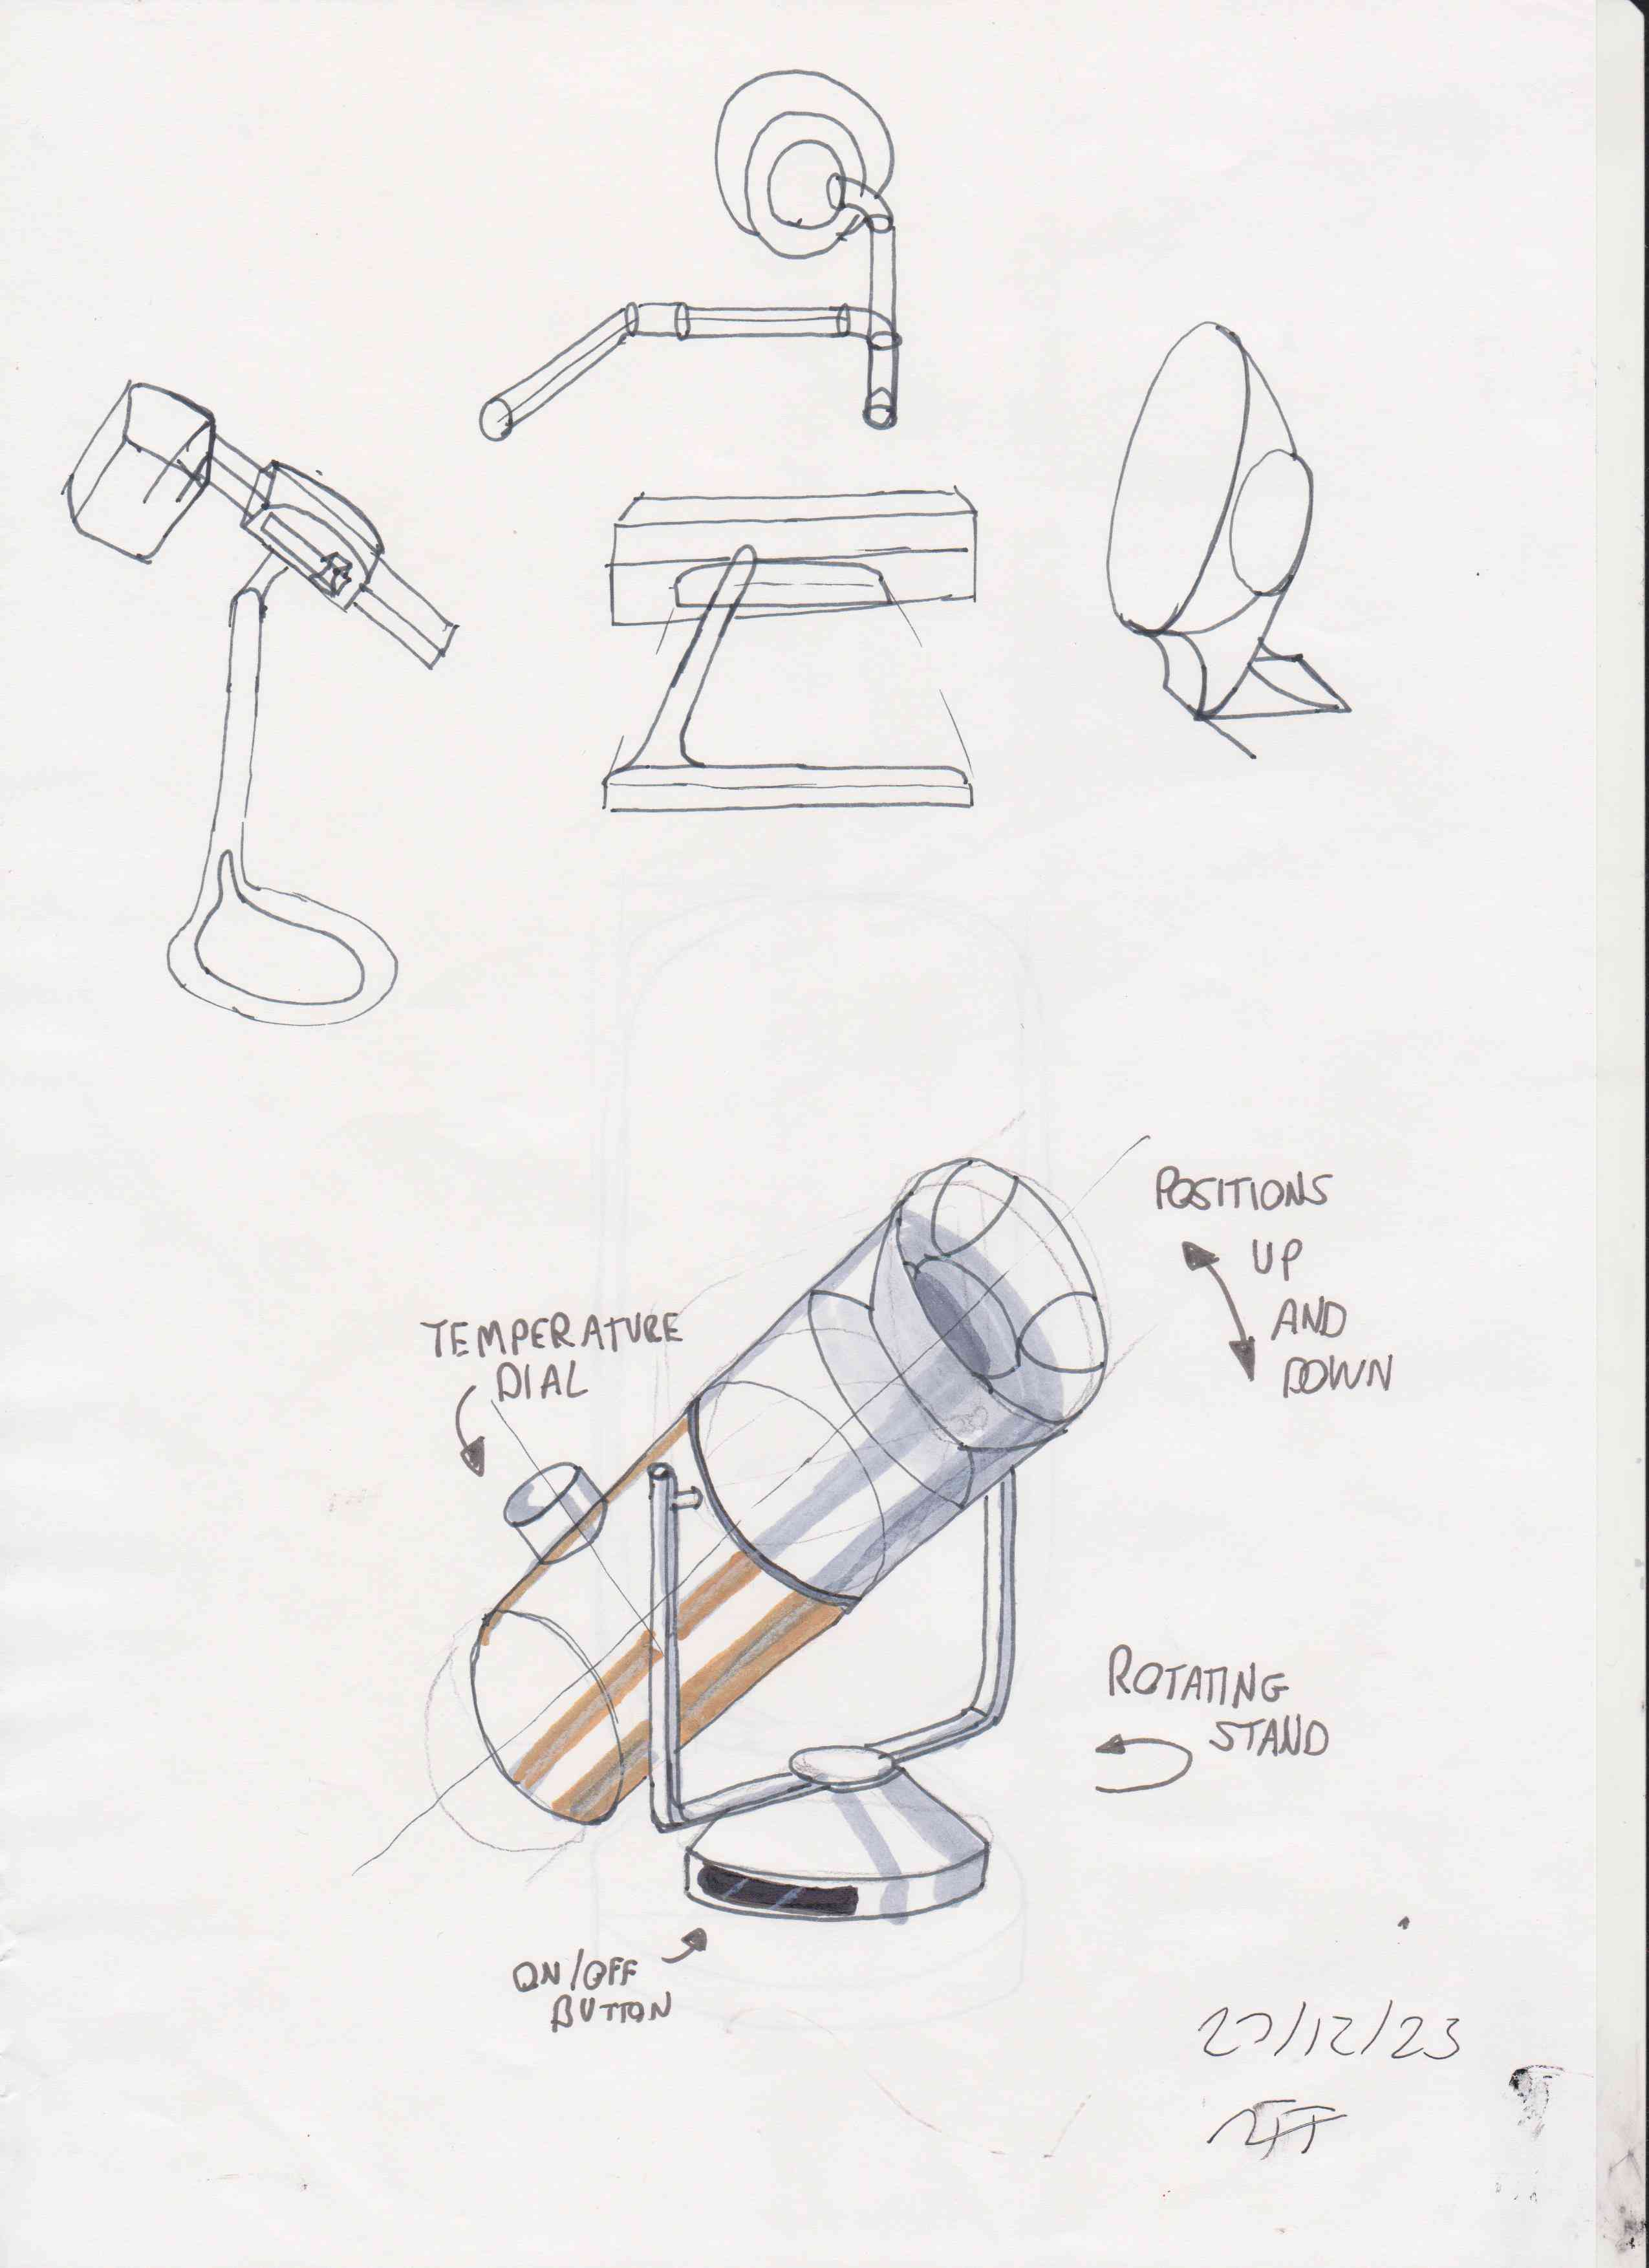 POSITIONS
UP
AND
DOWN
TEMPERATURE
DIAL
ROTATING
STAND
ON/OFF
BUTTON